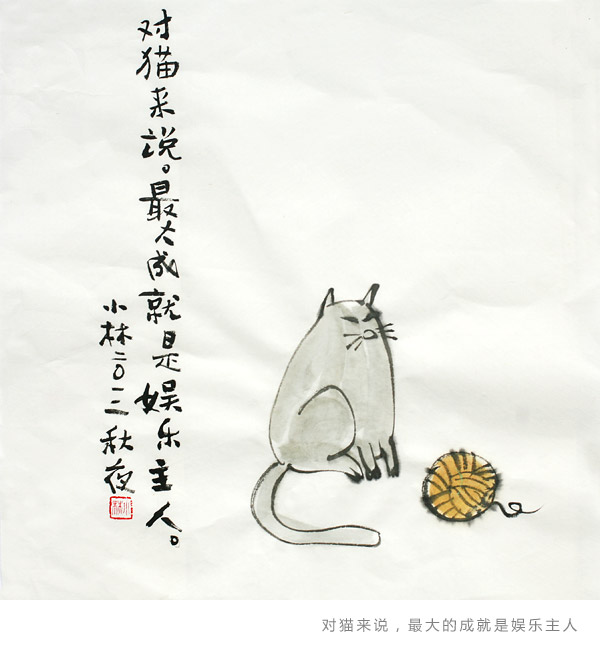 对猫来说。最大成就是娱乐主人。
小林二〇一三秋夜
小林
对猫来说，最大的成就是娱乐主人